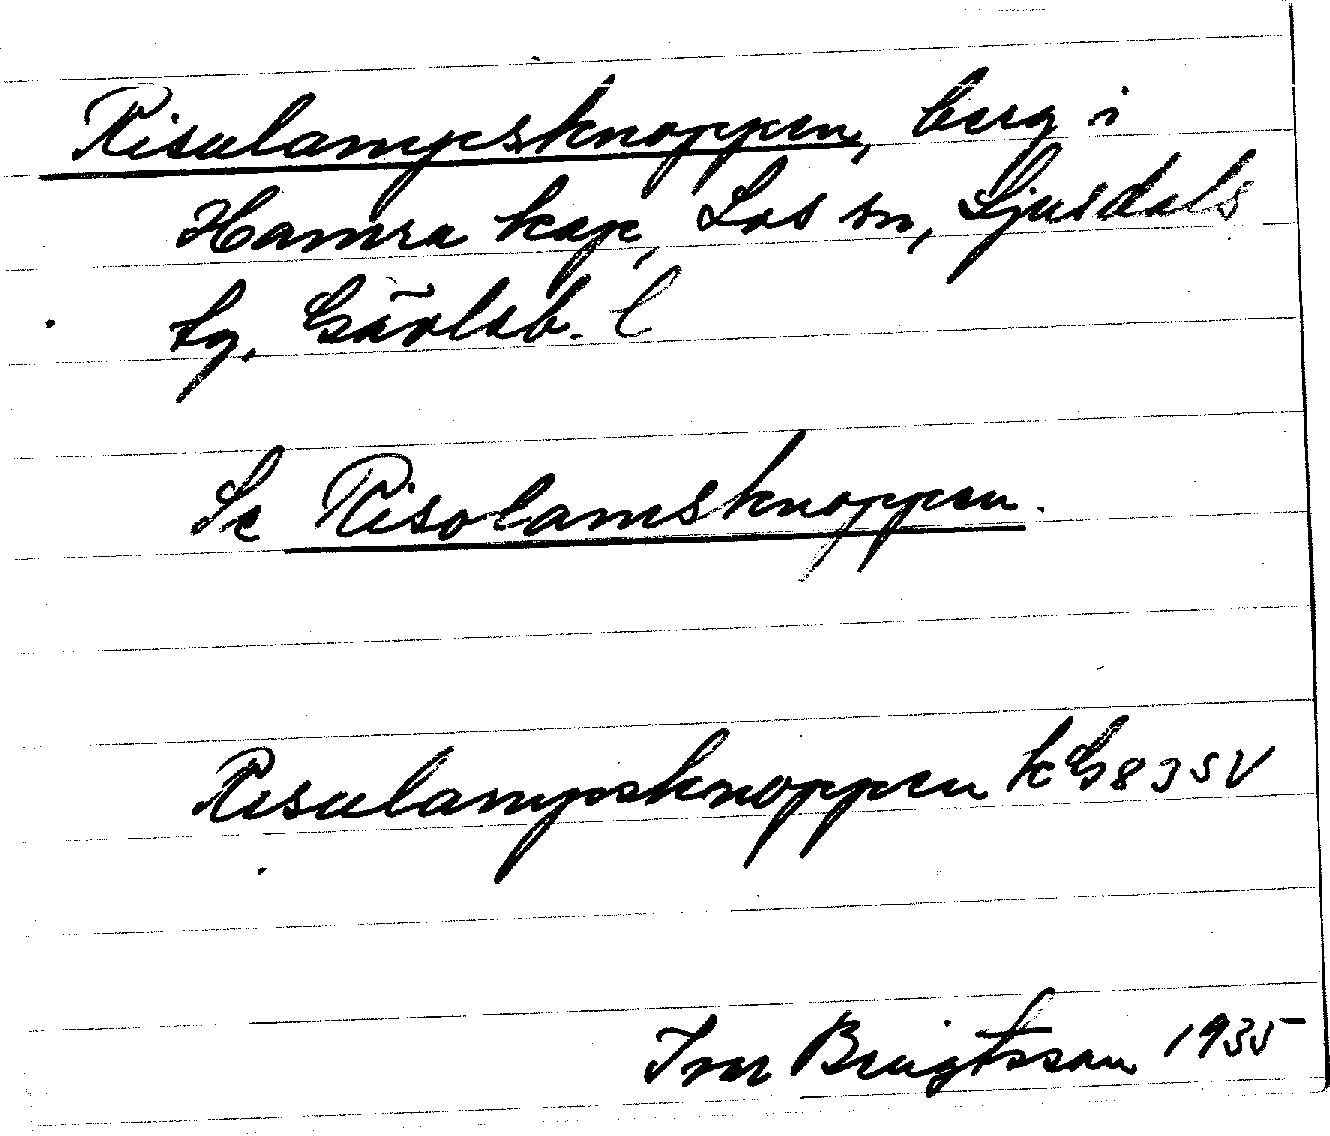 Risulampsknoppen, berg i
Hamra kap, Los sn, Ljusdals
tg, Gävleb. l
Se Risolamsknoppen.
Risulampsknoppen k G 83 SV
Ivar Bengtsson 1935